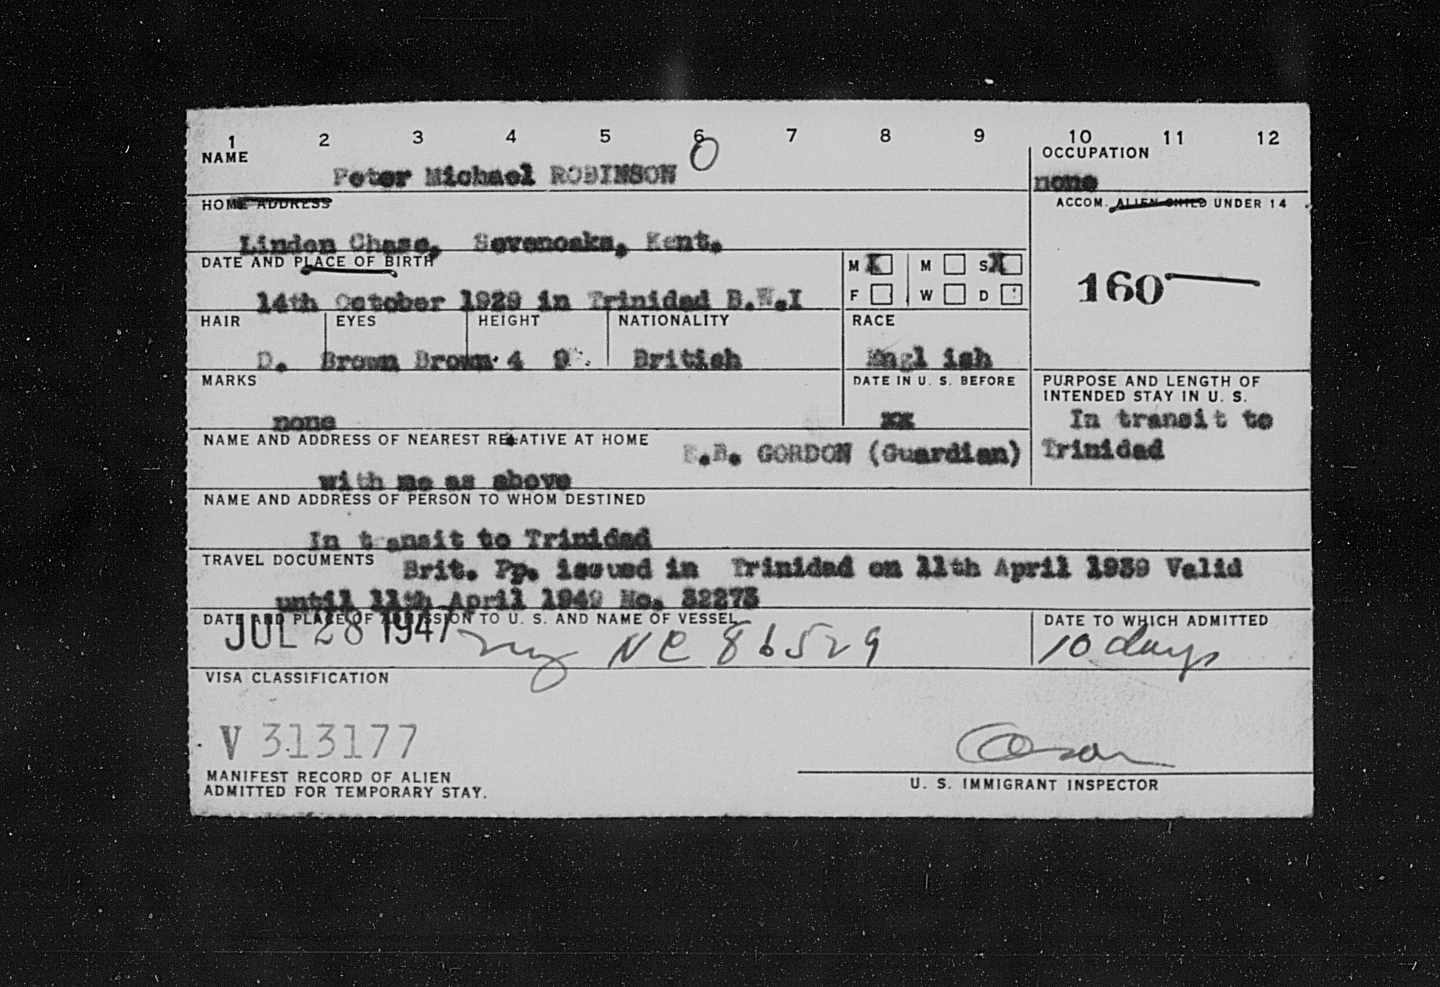 1 2 3 4 5 6 7 8 9 10 11 12
NAME
Peter Michael ROBINSON
O
OCCUPATION
none
HOME ADDRESS
Linden Chase, Sevenoaks, Kent.
ACCOM. ALIEN CHILD UNDER 14
160
DATE AND PLACE OF BIRTH
14th October 1929 in Trinidad B.W.I
M X M S X
F W D
HAIR EYES HEIGHT NATIONALITY RACE
D. Brown Brown 4 9 British Engl ish
MARKS
none
DATE IN U. S. BEFORE
xx
PURPOSE AND LENGTH OF
INTENDED STAY IN U. S.
In transit to
Trinidad
NAME AND ADDRESS OF NEAREST RELATIVE AT HOME
E.B. GORDON (Guardian)
with me as above
NAME AND ADDRESS OF PERSON TO WHOM DESTINED
In transit to Trinidad
TRAVEL DOCUMENTS
Brit. Pp. issued in Trinidad on 11th April 1939 Valid
until 11th April 1949 No. 32273
DATE AND PLACE OF ADMISSION TO U. S. AND NAME OF VESSEL
JUL 28 1947 NC 86529
DATE TO WHICH ADMITTED
10 days
VISA CLASSIFICATION
V 313177
MANIFEST RECORD OF ALIEN
ADMITTED FOR TEMPORARY STAY.
U. S. IMMIGRANT INSPECTOR